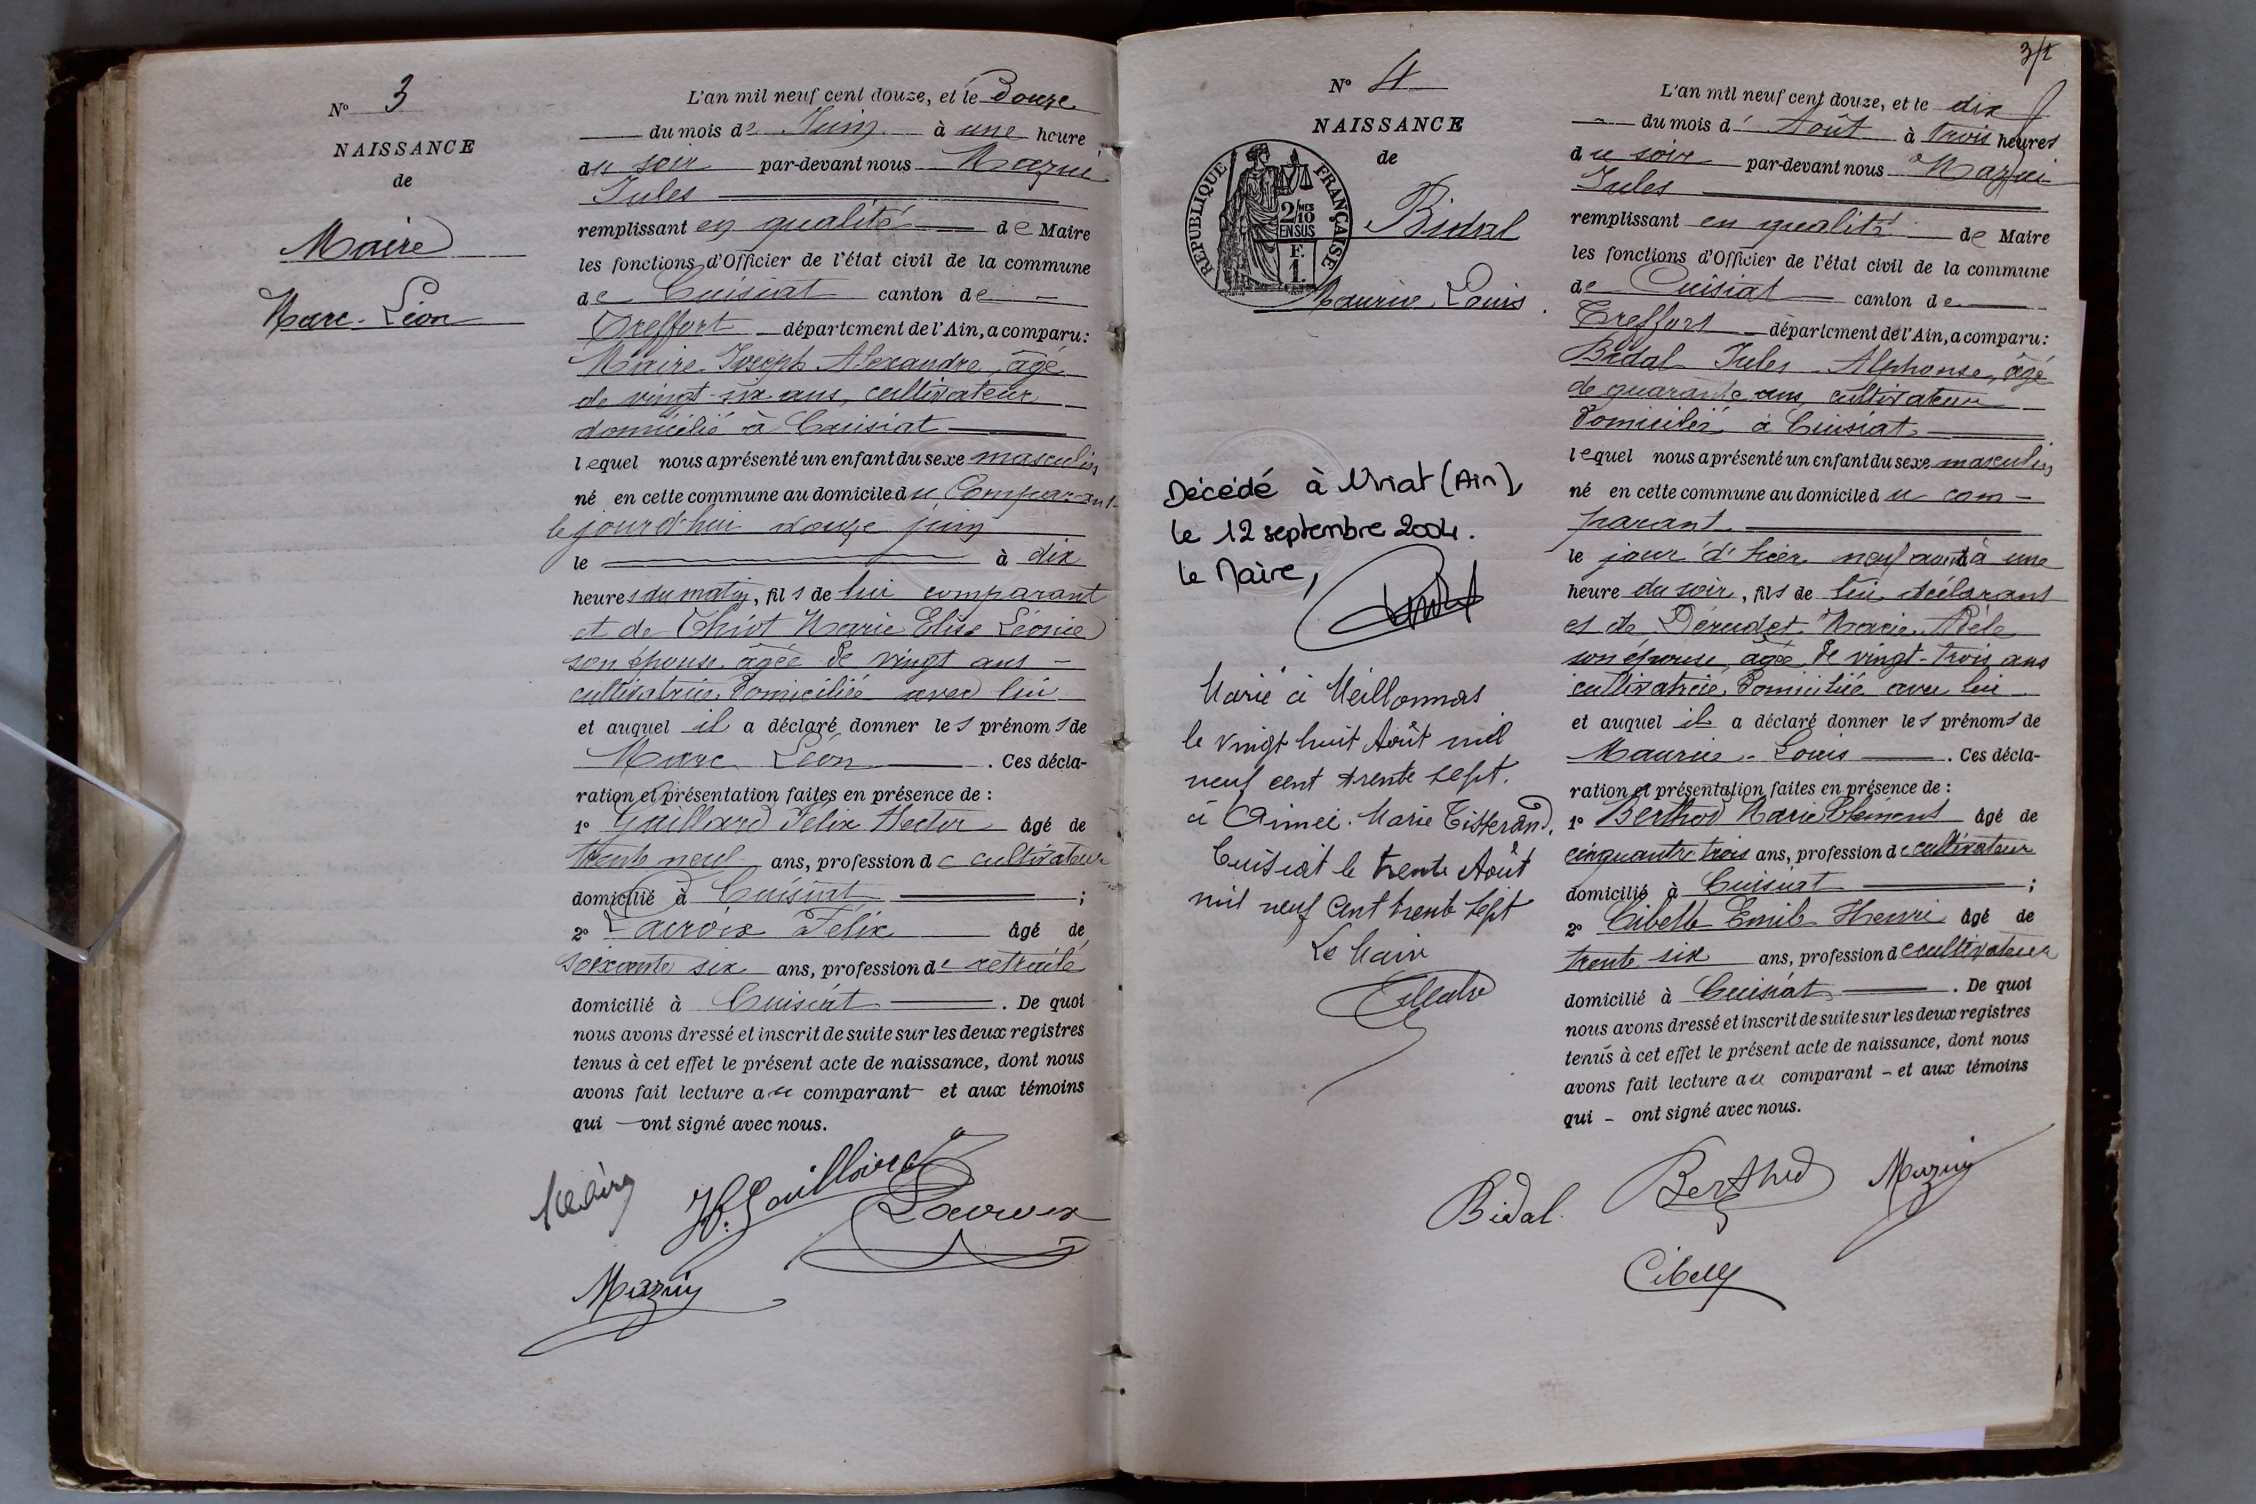 N° 3
NAISSANCE
de
Maire
Marc-Léon
L'an mil neuf cent douze, et le Douze
du mois de Juin à une heure
du soir par-devant nous Mazuir
Jules
remplissant en qualité de Maire
les fonctions d'Officier de l'état civil de la commune
de Cuisiat canton de
Treffort département de l'Ain, a comparu:
Maire Joseph Alexandre, âgé
de vingt-six ans, cultivateur
domicilié à Cuisiat
lequel nous a présenté un enfant du sexe masculin
né en cette commune au domicile du comparant
le jourd'hui douze juin
le à dix
heures du matin, fils de lui comparant
et de Thiot Marie Elise Léonie
son épouse âgée de vingt ans
cultivatrice, domiciliée avec lui
et auquel il a déclaré donner les prénoms de
Marc Léon. Ces décla-
ration et présentation faites en présence de :
1° Gaillard Félix Hector âgé de
trente neuf ans, profession de cultivateur
domicilié à Cuisiat ;
2° Lacroix Félix âgé de
soixante six ans, profession de retraité
domicilié à Cuisiat . De quoi
nous avons dressé et inscrit de suite sur les deux registres
tenus à cet effet le présent acte de naissance, dont nous
avons fait lecture au comparant et aux témoins
qui ont signé avec nous.
H. Gaillard
Lacroix
Mazuir
3/2
N° 4
NAISSANCE
de
RÉPUBLIQUE FRANÇAISE
2/10 MES
EN SUS
F.
1
Bidal
Maurice Louis
Décédé à Viriat (Ain),
le 12 septembre 2004.
le Maire,
Marié à Meillonnas
le vingt huit Août mil
neuf cent trente sept.
à Aimée Marie Tisserand.
Cuisiat le trente Août
mil neuf cent trente sept
Le Maire
L'an mil neuf cent douze, et le dix
du mois d' Août à trois heures
du soir par-devant nous Mazuir
Jules
remplissant en qualité de Maire
les fonctions d'Officier de l'état civil de la commune
de Cuisiat canton de
Treffort département de l'Ain, a comparu:
Bidal Jules Alphonse, âgé
de quarante ans, cultivateur
domicilié à Cuisiat
lequel nous a présenté un enfant du sexe masculin
né en cette commune au domicile du com-
parant
le jour d'hier neuf août à une
heure du soir, fils de lui déclarant
et de Dérudet Marie Adèle
son épouse, âgée de vingt-trois ans
cultivatrice, domiciliée avec lui
et auquel il a déclaré donner les prénoms de
Maurice-Louis . Ces décla-
ration et présentation faites en présence de :
1° Berthod Marie Clément âgé de
cinquante trois ans, profession de cultivateur
domicilié à Cuisiat ;
2° Cibelle Emile Henri âgé de
trente six ans, profession de cultivateur
domicilié à Cuisiat . De quoi
nous avons dressé et inscrit de suite sur les deux registres
tenus à cet effet le présent acte de naissance, dont nous
avons fait lecture au comparant - et aux témoins
qui - ont signé avec nous.
Bidal
Berthod
Mazuir
Cibelle